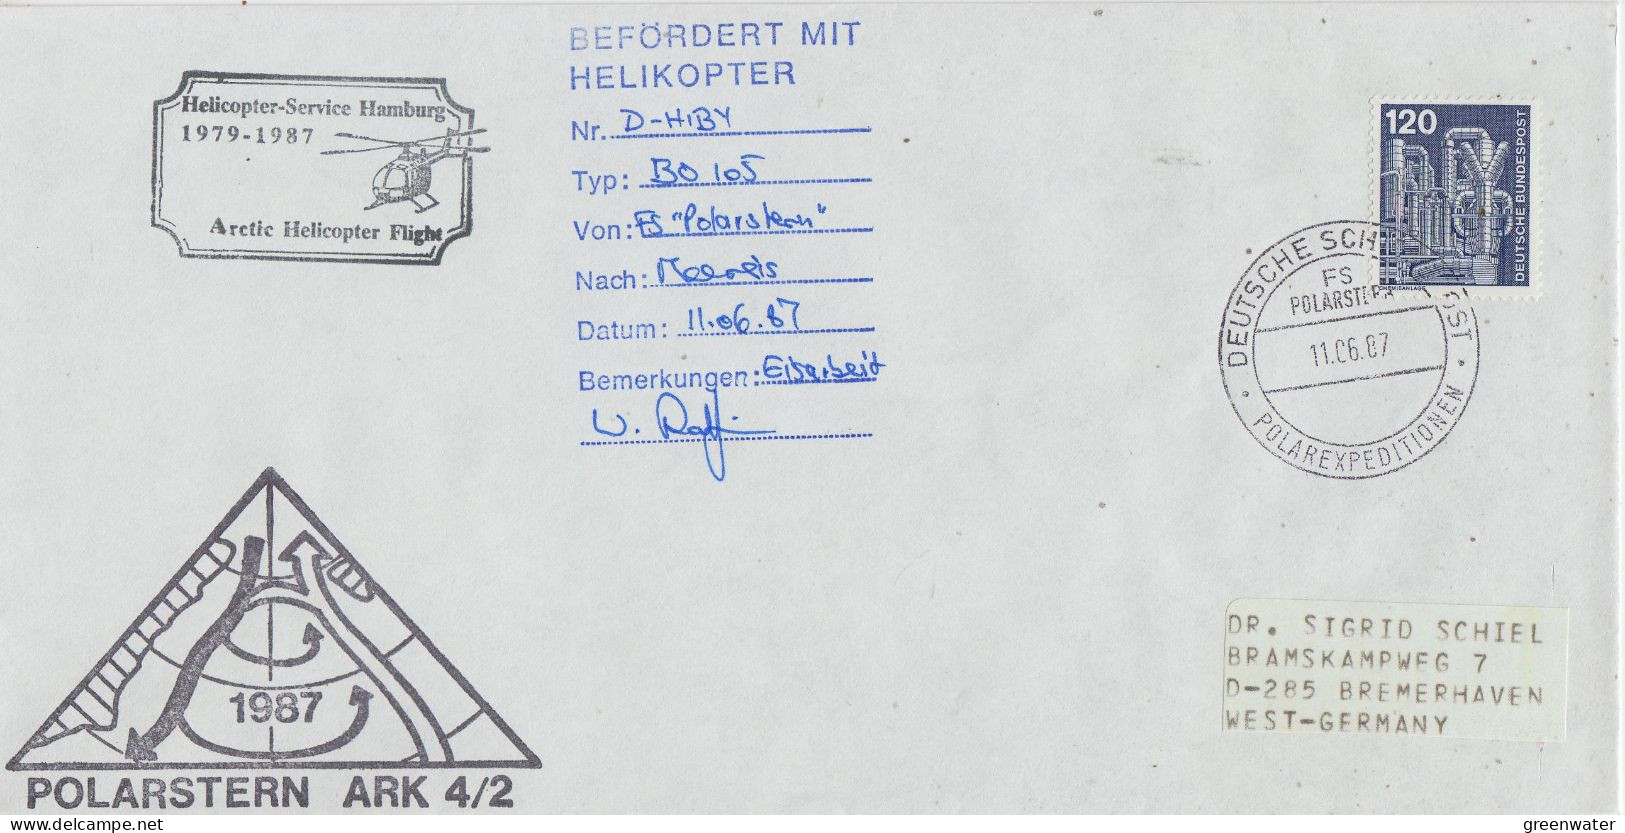 Helicopter-Service Hamburg
1979-1987
Arctic Helicopter Flight
BEFÖRDERT MIT
HELIKOPTER
Nr. D-HIBY
Typ: BO 105
Von: FS "Polarstern"
Nach: Meereis
Datum: 11.06.87
Bemerkungen: Eisarbeit
W.
120
DEUTSCHE BUNDESPOST
CHEMIEANLAGE
DEUTSCHE SCH OST
FS
POLARSTERN
11.06.87
POLAREXPEDITIONEN
DR. SIGRID SCHIEL
BRAMSKAMPWEG 7
D-285 BREMERHAVEN
WEST-GERMANY
1987
POLARSTERN ARK 4/2
delcampe.net
greenwater